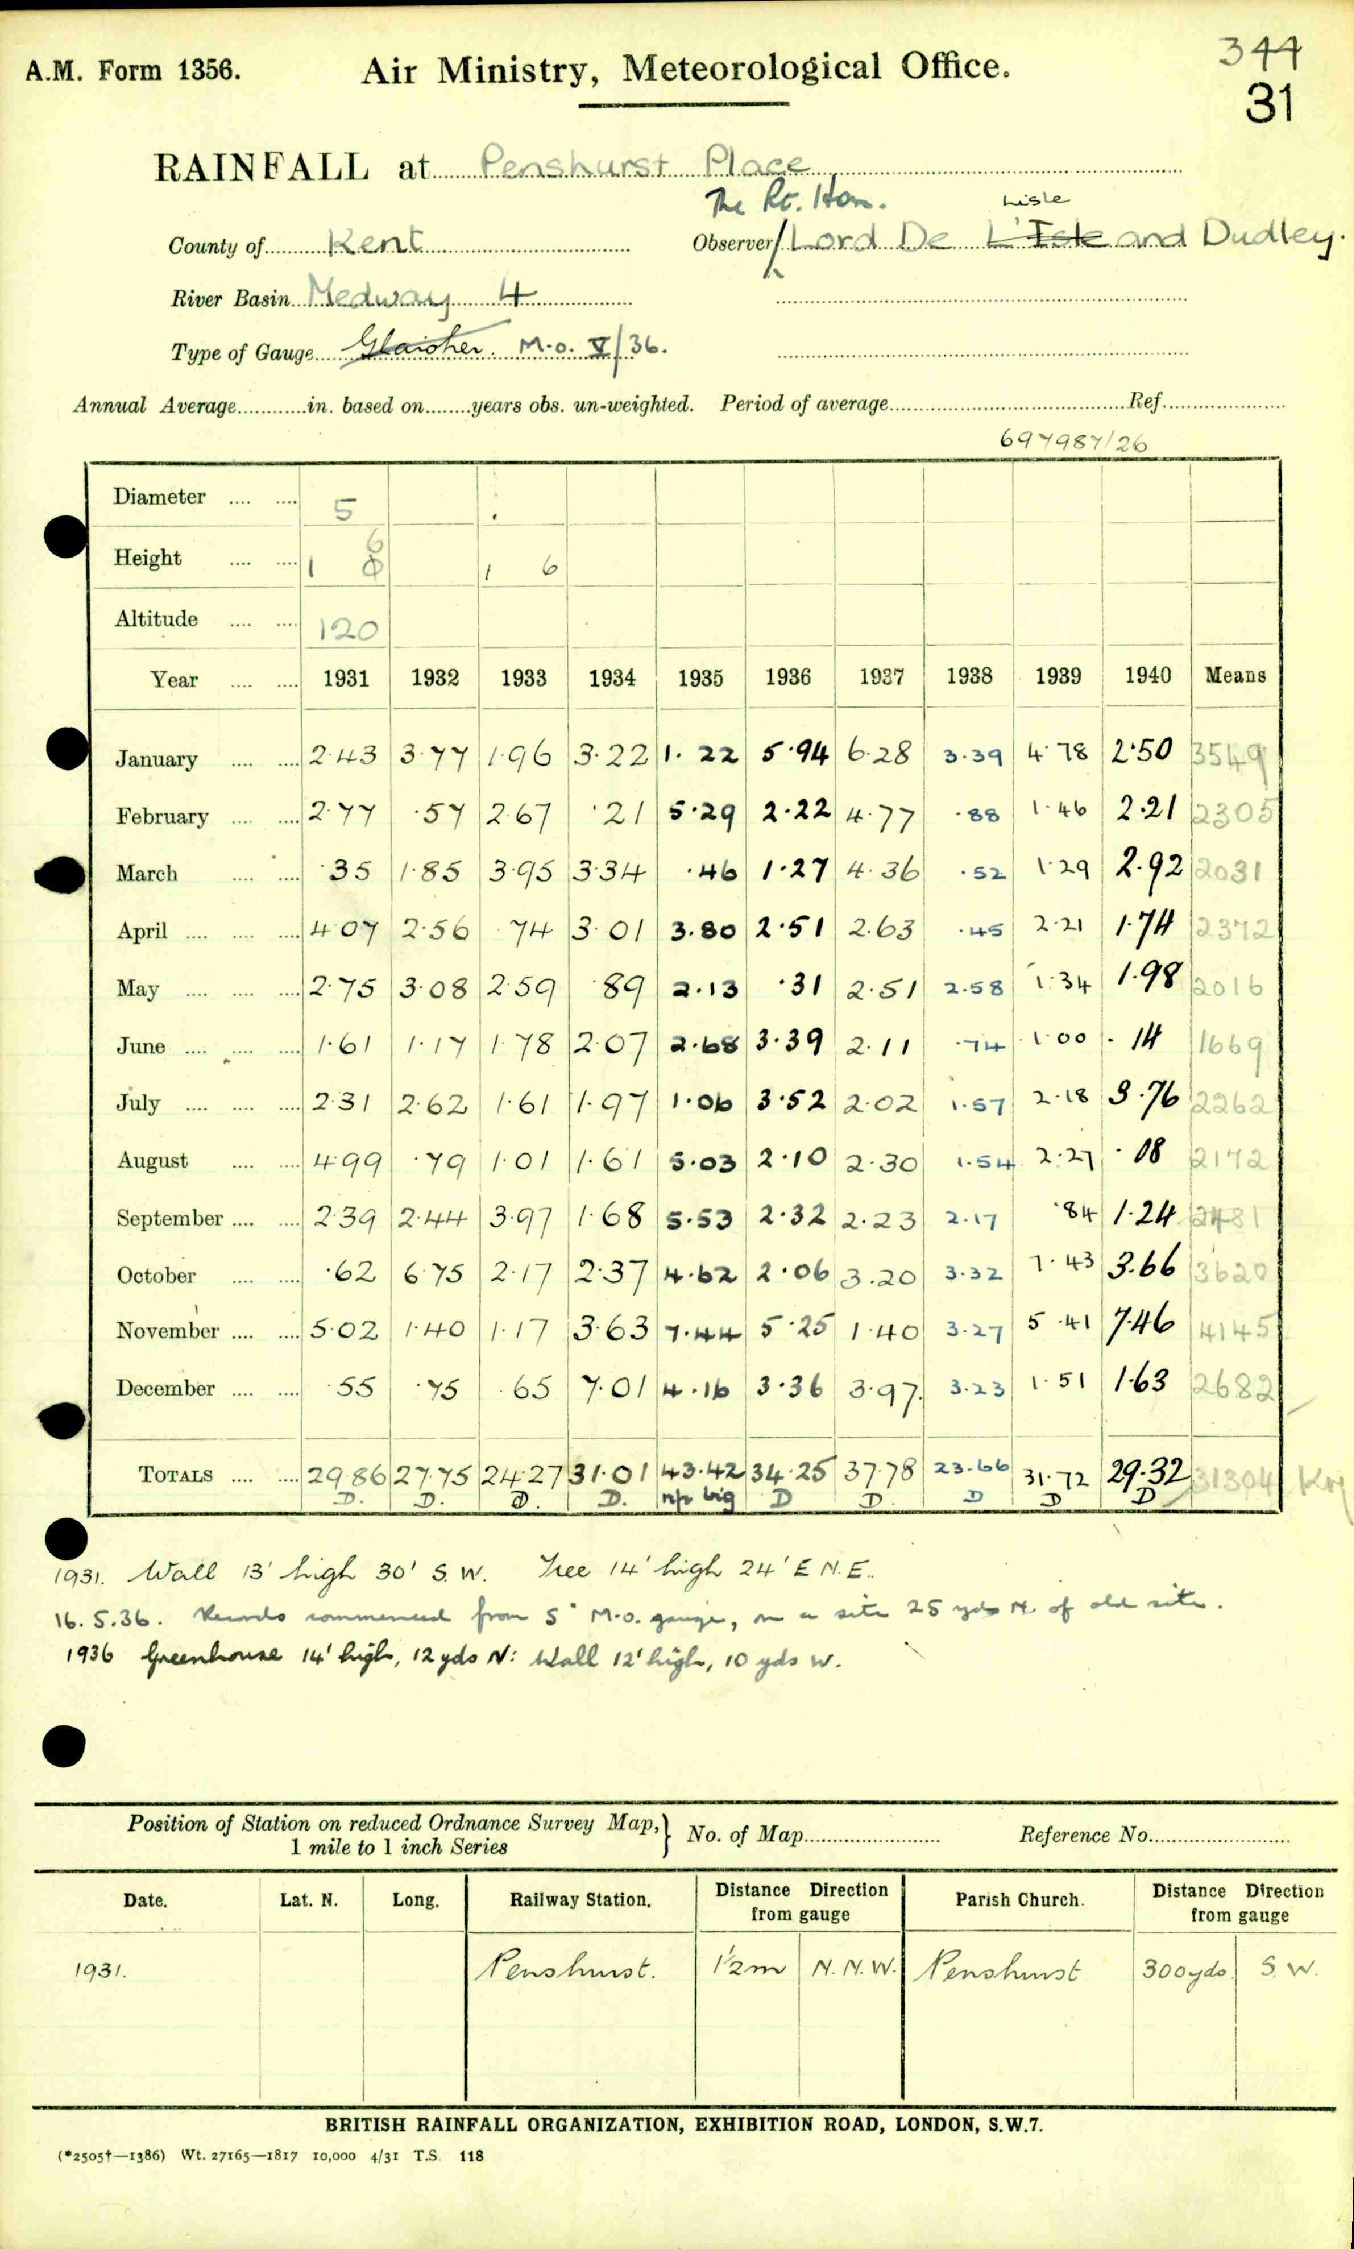 A.M. Form 1356. Air Ministry, Meteorological Office. 344
31
RAINFALL at Penshurst Place
The Rt. Hon. Lisle
County of Kent Observer Lord De L'Isle and Dudley.
River Basin Medway 4
Type of Gauge Glaisher. M.O. V/36.
Annual Average in. based on years obs. un-weighted. Period of average Ref.
697987/26
Diameter 5
Height 1 8 6 1 6
Altitude 120
Year 1931 1932 1933 1934 1935 1936 1937 1938 1939 1940 Means
January 2.43 3.77 1.96 3.22 1.22 5.94 6.28 3.39 4.78 2.50 3549
February 2.77 .57 2.67 .21 5.29 2.22 4.77 .88 1.46 2.21 2305
March .35 1.85 3.95 3.34 .46 1.27 4.36 .52 1.29 2.92 2031
April 4.07 2.56 .74 3.01 3.80 2.51 2.63 .45 2.21 1.74 2372
May 2.75 3.08 2.59 .89 2.13 .31 2.51 2.58 1.34 1.98 2016
June 1.61 1.17 1.78 2.07 2.68 3.39 2.11 .74 1.00 .14 1669
July 2.31 2.62 1.61 1.97 1.06 3.52 2.02 1.57 2.18 3.76 2262
August 4.99 .79 1.01 1.61 5.03 2.10 2.30 1.54 2.27 .08 2172
September 2.39 2.44 3.97 1.68 5.53 2.32 2.23 2.17 .84 1.24 2481
October .62 6.75 2.17 2.37 4.62 2.06 3.20 3.32 7.43 3.66 3620
November 5.02 1.40 1.17 3.63 7.44 5.25 1.40 3.27 5.41 7.46 4145
December .55 .75 .65 7.01 4.16 3.36 3.97 3.23 1.51 1.63 2682
TOTALS 29.86 27.75 24.27 31.01 43.42 34.25 37.78 23.66 31.72 29.32 31304
D. D. D. D. n/p big D D D D D
1931. Wall 13' high 30' S.W. Tree 14' high 24' E.N.E.
16.5.36. Records commenced from 5" M.O. gauge, on a site 25 yds N. of old site.
1936 Greenhouse 14' high, 12 yds N: Wall 12' high, 10 yds W.
Position of Station on reduced Ordnance Survey Map, 1 mile to 1 inch Series } No. of Map Reference No.
Date. Lat. N. Long. Railway Station. Distance Direction from gauge Parish Church. Distance Direction from gauge
1931. Penshurst. 1½m N.N.W. Penshurst 300yds S.W.
BRITISH RAINFALL ORGANIZATION, EXHIBITION ROAD, LONDON, S.W.7.
(*2505†—1386) Wt. 27165—1817 10,000 4/31 T.S. 118